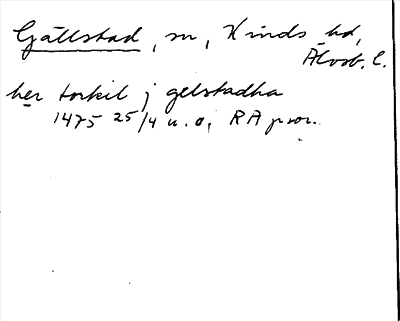 Gällstad, sn, Kinds hd,
Älvsb. l.
her torkil j gelstadha
1475 25/4 u. o, RA pror.